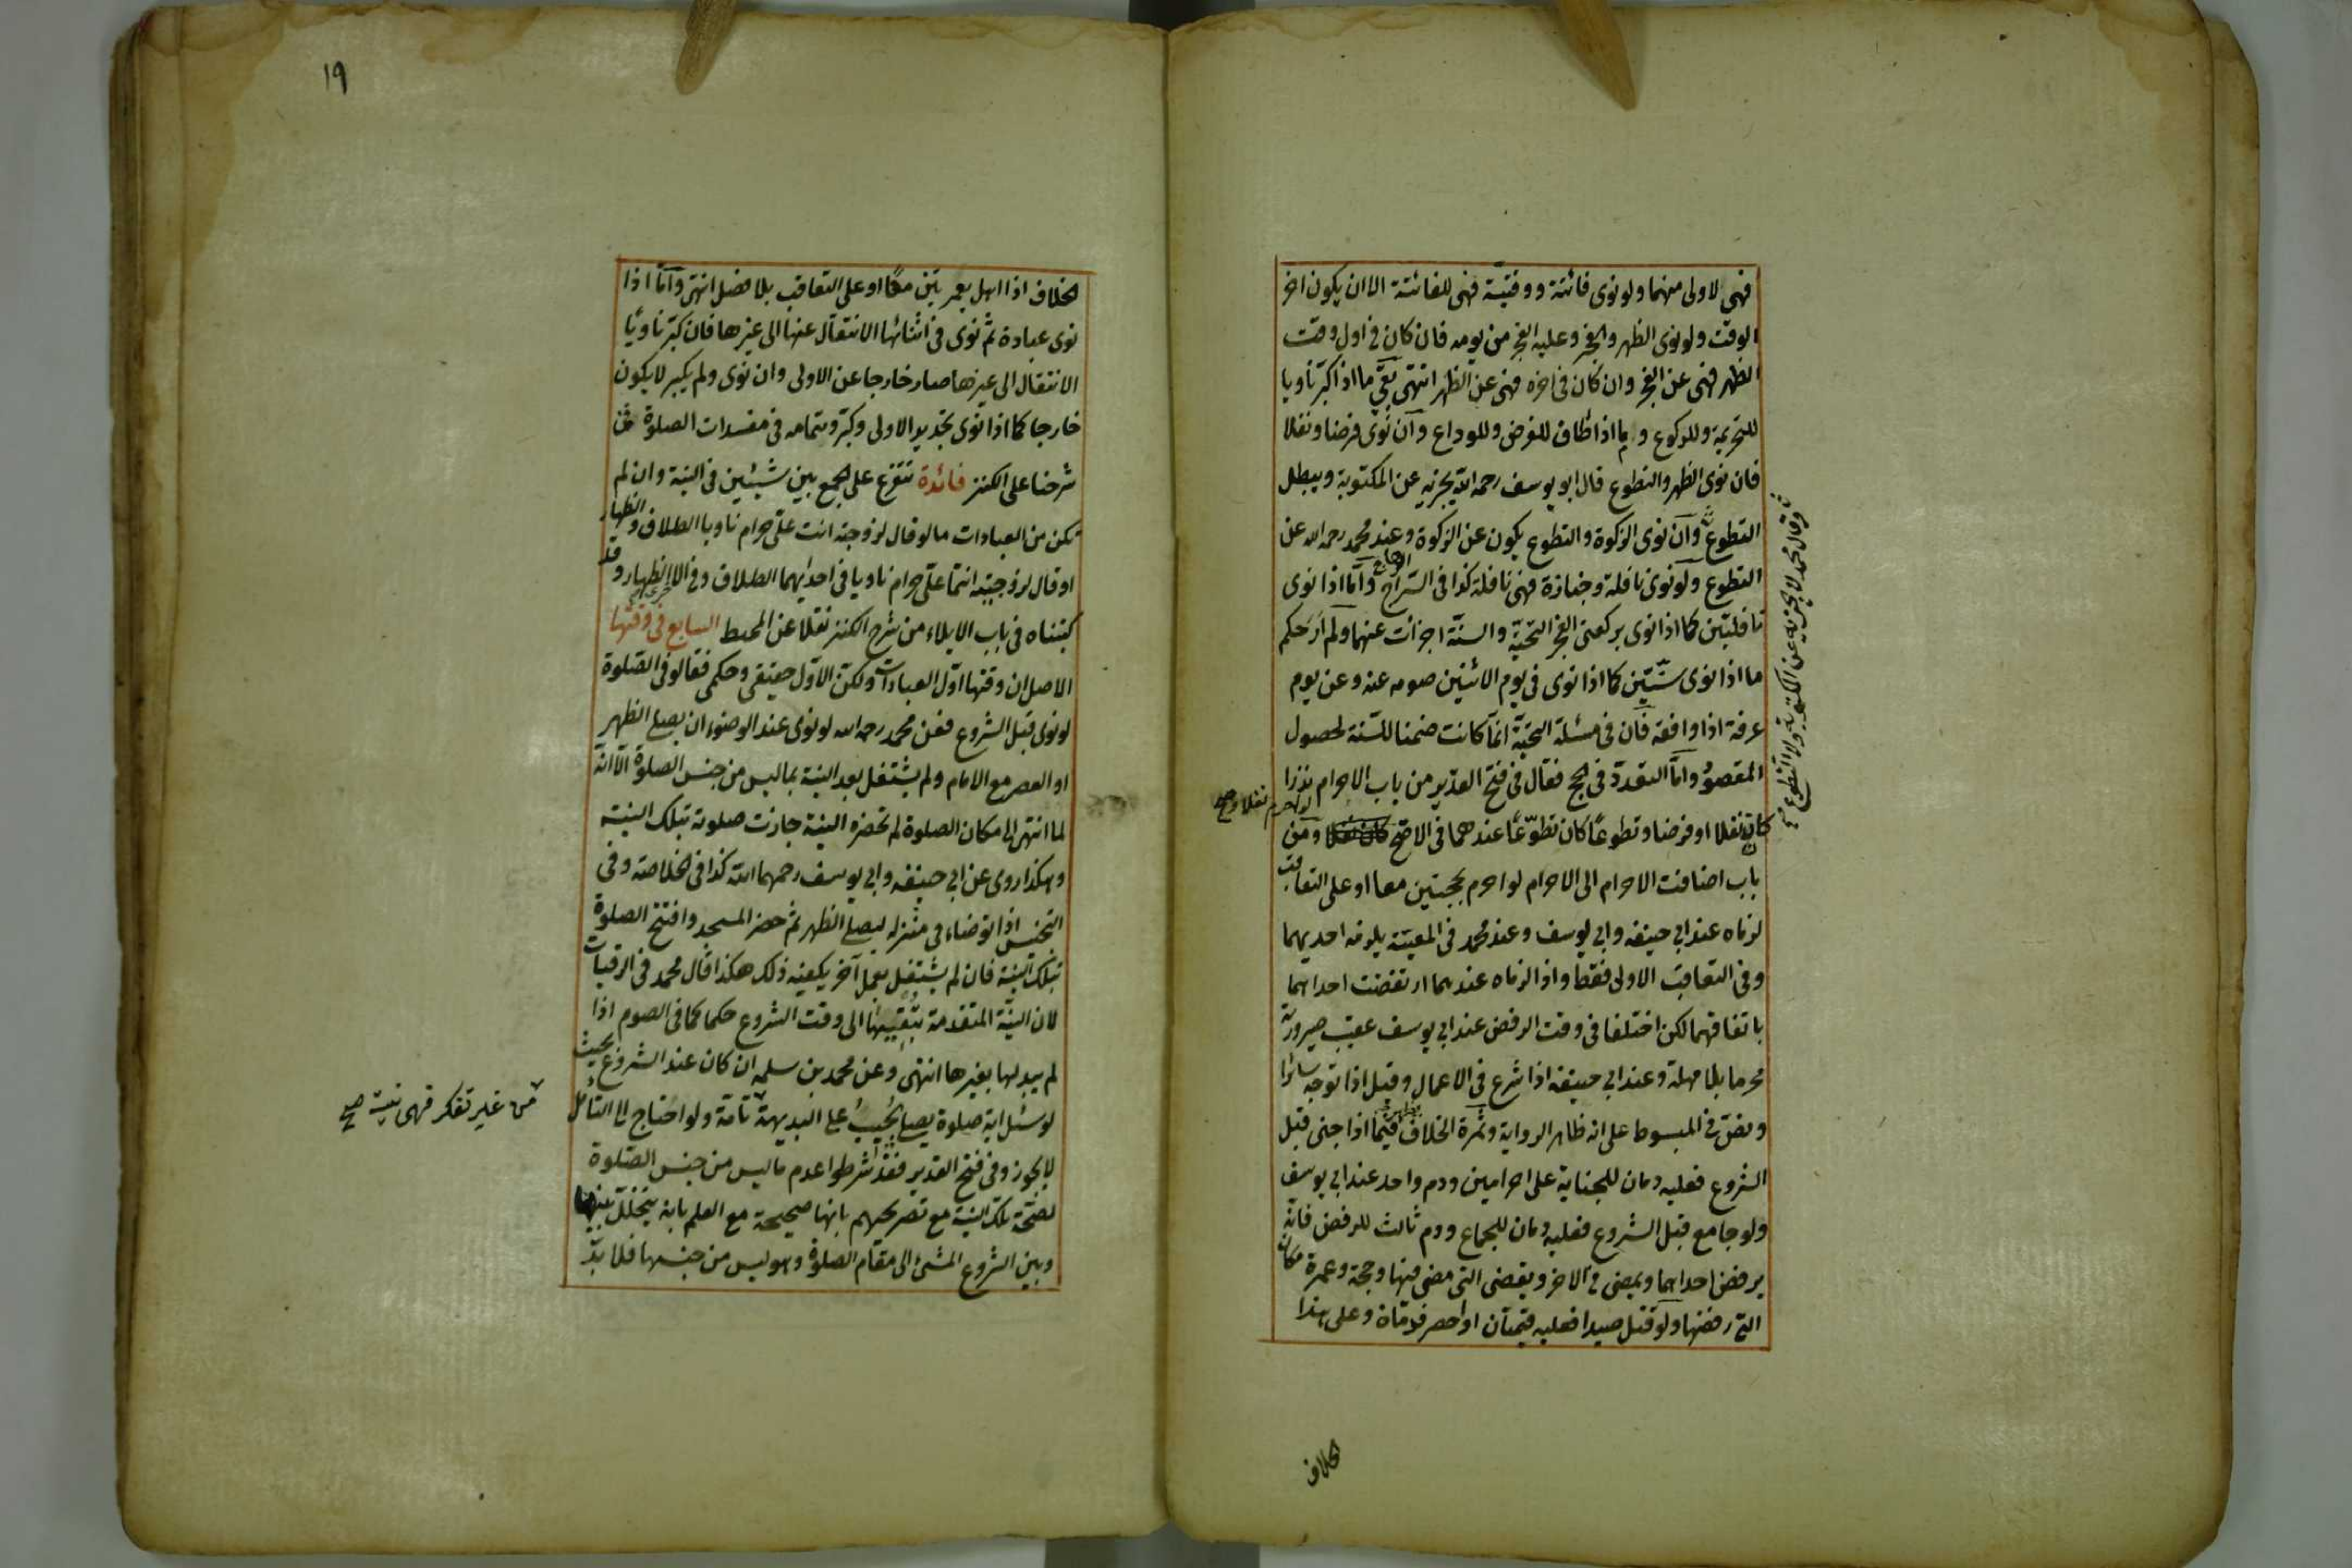 فهى لاولى منهما ولو نوى فائتة ووقتية فهى للفائتة الا ان يكون اخر
الوقت ولو نوى الظهر والفجر وعليه الفجر من يومه فان كان فى اول وقت
الظهر فهى عن الفجر وان كان فى اخره فهى عن الظهر انتهى بقى ما اذا كبر ناويا
للتحريمة وللركوع وما اذا طاف للفرض وللوداع وان نوى فرضا ونفلا
فان نوى الظهر والتطوع قال ابو يوسف رحمه الله يجزيه عن المكتوبة ويبطل
التطوع وان نوى الزكوة والتطوع يكون عن الزكوة وعند محمد رحمه الله عن
التطوع ولو نوى نافلة وجنازة فهى نافلة كذا فى السراج الوهاج واما اذا نوى
نافلتين كما اذا نوى بركعتى الفجر التحية والسنة اجزأت عنهما ولم ار حكم
ما اذا نوى سنتين كما اذا نوى فى يوم الاثنين صومه عنه وعن يوم
عرفة اذا وافقه فان فى مسئلة التحية انما كانت ضمنا للسنة لحصول
المقصود واما التعدد فى الحج فقال فى فتح القدير من باب الاحرام نذرا
لو احرم نفلا وصح
كان نفلا او فرضا وتطوعا كان تطوعا عندهما فى الاصح ومن
باب اضافت الاحرام الى الاحرام لو احرم بحجتين معا او على التعاقب
لزماه عند ابى حنيفه وابى يوسف وعند محمد فى المعية يلزمه احديهما
وفى التعاقب الاولى فقط واذا لزماه عندهما ارتفضت احداهما
باتفاقهما لكن اختلفا فى وقت الرفض عند ابى يوسف عقيب صيرورته
محرما بلا مهلة وعند ابى حنيفه اذا شرع فى الاعمال وقيل اذا توجه سائرا
ونص فى المبسوط على انه ظاهر الرواية وثمرة الخلاف تظهر فيما اذا جنى قبل
الشروع فعليه دمان للجناية على احرامين ودم واحد عند ابى يوسف
ولو جامع قبل الشروع فعليه دمان للجماع ودم ثالث للرفض فانه
يرفض احداهما ويمضى فى الاخر ويقضى التى مضى فيها وحجة وعمرة مكان
التى رفضها ولو قتل صيدا فعليه قيمتان او احصر فدماه وعلى هذا
وقال محمد لا تجزيه عن المكتوبة ولا التطوع صح
الخلاف
١٩
الخلاف اذا اهل بعمرتين معا او على التعاقب بلا فصل انتهى واما اذا
نوى عبادة ثم نوى فى اثنائها الانتقال عنها الى غيرها فان كبر ناويا
الانتقال الى غيرها صار خارجا عن الاولى وان نوى ولم يكبر لا يكون
خارجا كما اذا نوى تجديد الاولى وكبر وتمامه فى مفسدات الصلوة فى
شرحنا على الكنز فائدة تتفرع على الجمع بين شيئين فى النية وان لم
تكن من العبادات ما لو قال لزوجته انت على حرام ناويا الطلاق والظهار
او قال لزوجتيه انتما على حرام ناويا فى احديهما الطلاق وفى الاخرى الظهار وقد
كتبناه فى باب الايلاء من شرح الكنز نقلا عن المحيط السابع فى وقتها
الاصل ان وقتها اول العبادات ولكن الاول حقيقى وحكمى فقالو فى الصلوة
لو نوى قبل الشروع فعن محمد رحمه الله لو نوى عند الوضوء ان يصلى الظهر
او العصر مع الامام ولم يشتغل بعد النية بما ليس من جنس الصلوة الا انه
لما انتهى الى مكان الصلوة لم تحضره النية جازت صلوته بتلك النية
وهكذا روى عن ابى حنيفه وابى يوسف رحمهما الله كذا فى الخلاصة وفى
التجنيس اذا توضاء فى منزله ليصلى الظهر ثم حضر المسجد وافتتح الصلوة
بتلك النية فان لم يشتغل بعمل آخر يكفيه ذلك هكذا قال محمد فى الرقيات
لان النية المتقدمة يبقيها الى وقت الشروع حكما كما فى الصوم اذا
لم يبدلها بغيرها انتهى وعن محمد بن سلمه ان كان عند الشروع بحيث
لو سئل اية صلوة يصلى يجيب على البديهة تامة ولو احتاج الى التأمل
لا يجوز وفى فتح القدير فقد شرطوا عدم ما ليس من جنس الصلوة
لصحة تلك النية مع تصريحهم بانها صحيحة مع العلم بانه يتخلل بينها
وبين الشروع المشى الى مقام الصلوة وهو ليس من جنسها فلا بد
من غير تفكر فهى نية صح